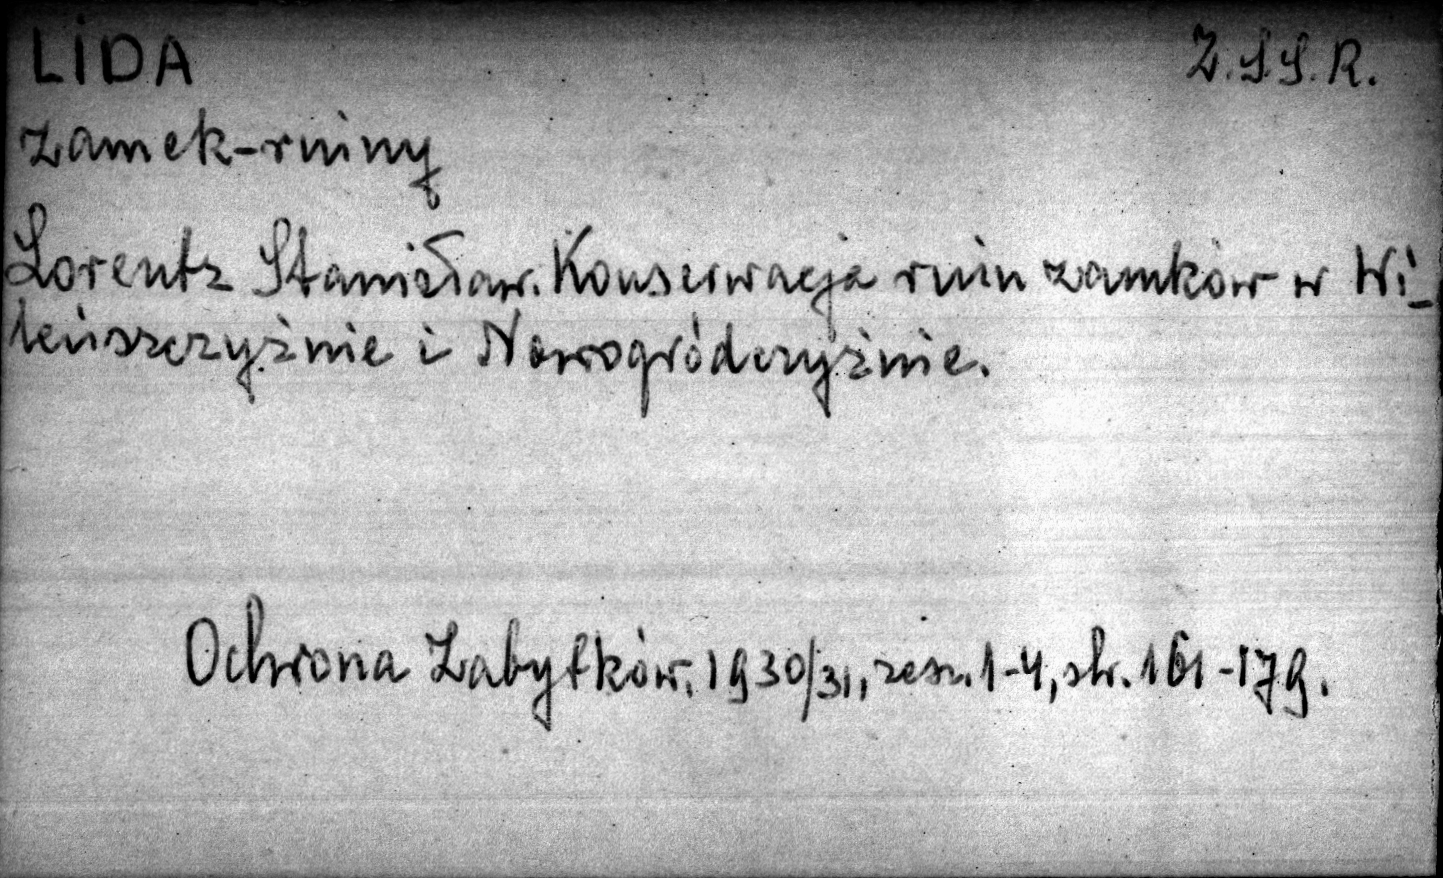 LIDA
Z.S.S.R.
zamek-ruiny
Lorentz Stanisław. Konserwacja ruin zamków w Wi-
leńszczyźnie i Nowogródczyźnie.
Ochrona Zabytków, 1930/31, zesz. 1-4, str. 161-179.